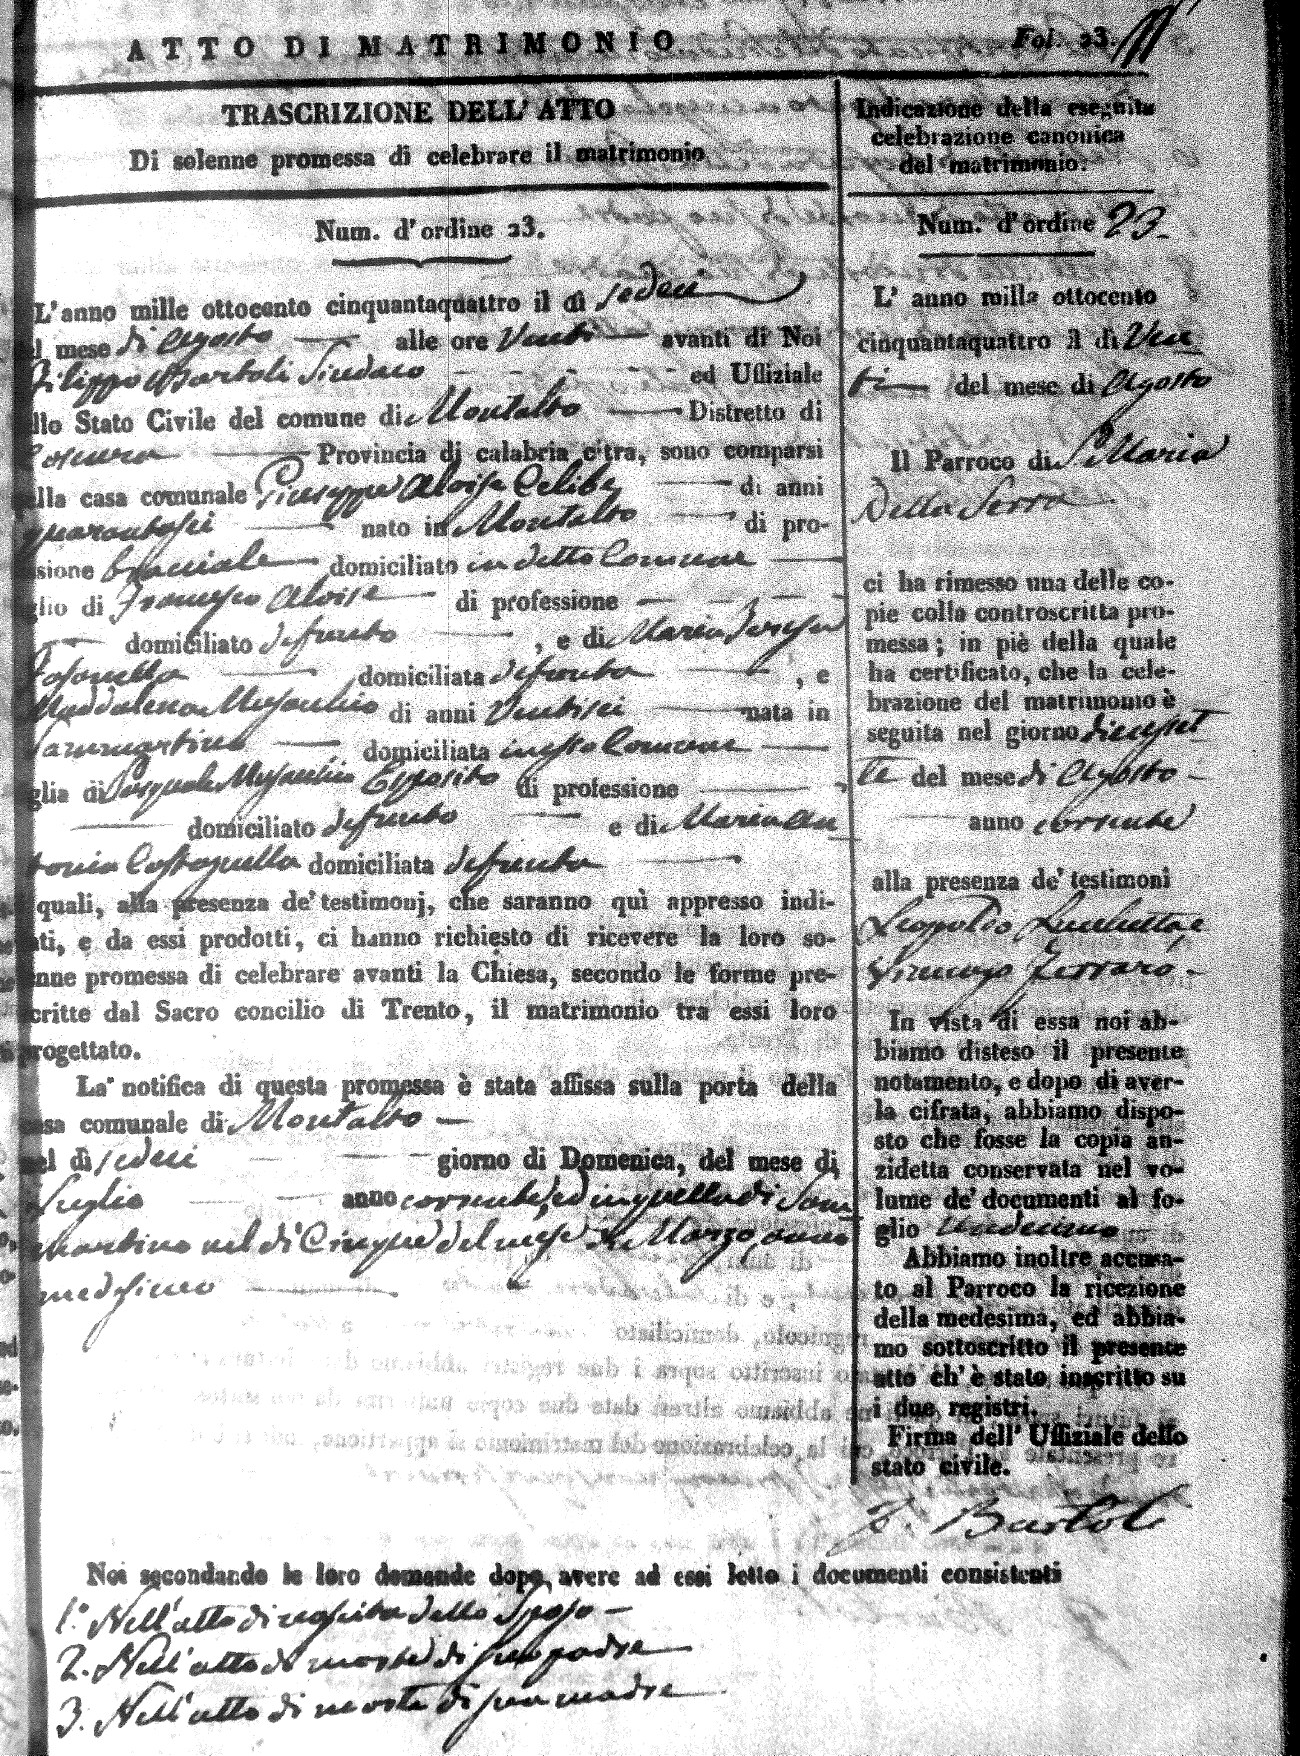 ATTO DI MATRIMONIO
Fol. 23.
TRASCRIZIONE DELL' ATTO
Di solenne promessa di celebrare il matrimonio
Num. d' ordine 23.
L'anno mille ottocento cinquantaquattro il dì sedeci
l mese di Agosto alle ore Venti avanti di Noi
Filippo Bartoli Sindaco ed Uffiziale
llo Stato Civile del comune di Montalto Distretto di
Cosenza Provincia di calabria citra, sono comparsi
lla casa comunale Giuseppe Aloise Celibe di anni
quarantasei nato in Montalto di pro-
sione bracciale domiciliato in detto Comune
glio di Francesco Aloise di professione
domiciliato defunto , e di Maria Teresa
domiciliata defunta , e
Maddalena di anni Ventisei nata in
Sanmartino domiciliata in questo Comune
glia di Pasquale Esposito di professione
domiciliato defunto e di Maria An
tonia domiciliata defunta
quali, alla presenza de' testimonj, che saranno quì appresso indi-
ti, e da essi prodotti, ci hanno richiesto di ricevere la loro so-
enne promessa di celebrare avanti la Chiesa, secondo le forme pre-
critte dal Sacro concilio di Trento, il matrimonio tra essi loro
progettato.
La notifica di questa promessa è stata affissa sulla porta della
asa comunale di Montalto
el dì sedeci giorno di Domenica, del mese di
Luglio anno corrente, ed in quella di San
martino nel dì Cinque del mese di Marzo, anno
medesimo
Indicazione della eseguita
celebrazione canonica
del matrimonio.
Num. d' ordine 23.
L' anno mille ottocento
cinquantaquattro il dì Ven
ti del mese di Agosto
Il Parroco di S. Maria
Della Serra
ci ha rimesso una delle co-
pie colla controscritta pro-
messa; in piè della quale
ha certificato, che la cele-
brazione del matrimonio è
seguita nel giorno dieciset
te del mese di Agosto
anno corrente
alla presenza de' testimoni
Leopoldo e
Vincenzo Ferraro
In vista di essa noi ab-
biamo disteso il presente
notamento, e dopo di aver-
la cifrata, abbiamo dispo-
sto che fosse la copia an-
zidetta conservata nel vo-
lume de' documenti al fo-
glio Undecimo
Abbiamo inoltre accusa-
to al Parroco la ricezione
della medesima, ed abbia-
mo sottoscritto il presente
atto ch' è stato inscritto su
i due registri.
Firma dell' Uffiziale dello
stato civile.
F. Bartoli
Noi secondando le loro domande dopo avere ad essi letto i documenti consistenti
1.° Nell'atto di nascita dello Sposo
2. Nell'atto di morte di suo padre
3. Nell'atto di morte di sua madre